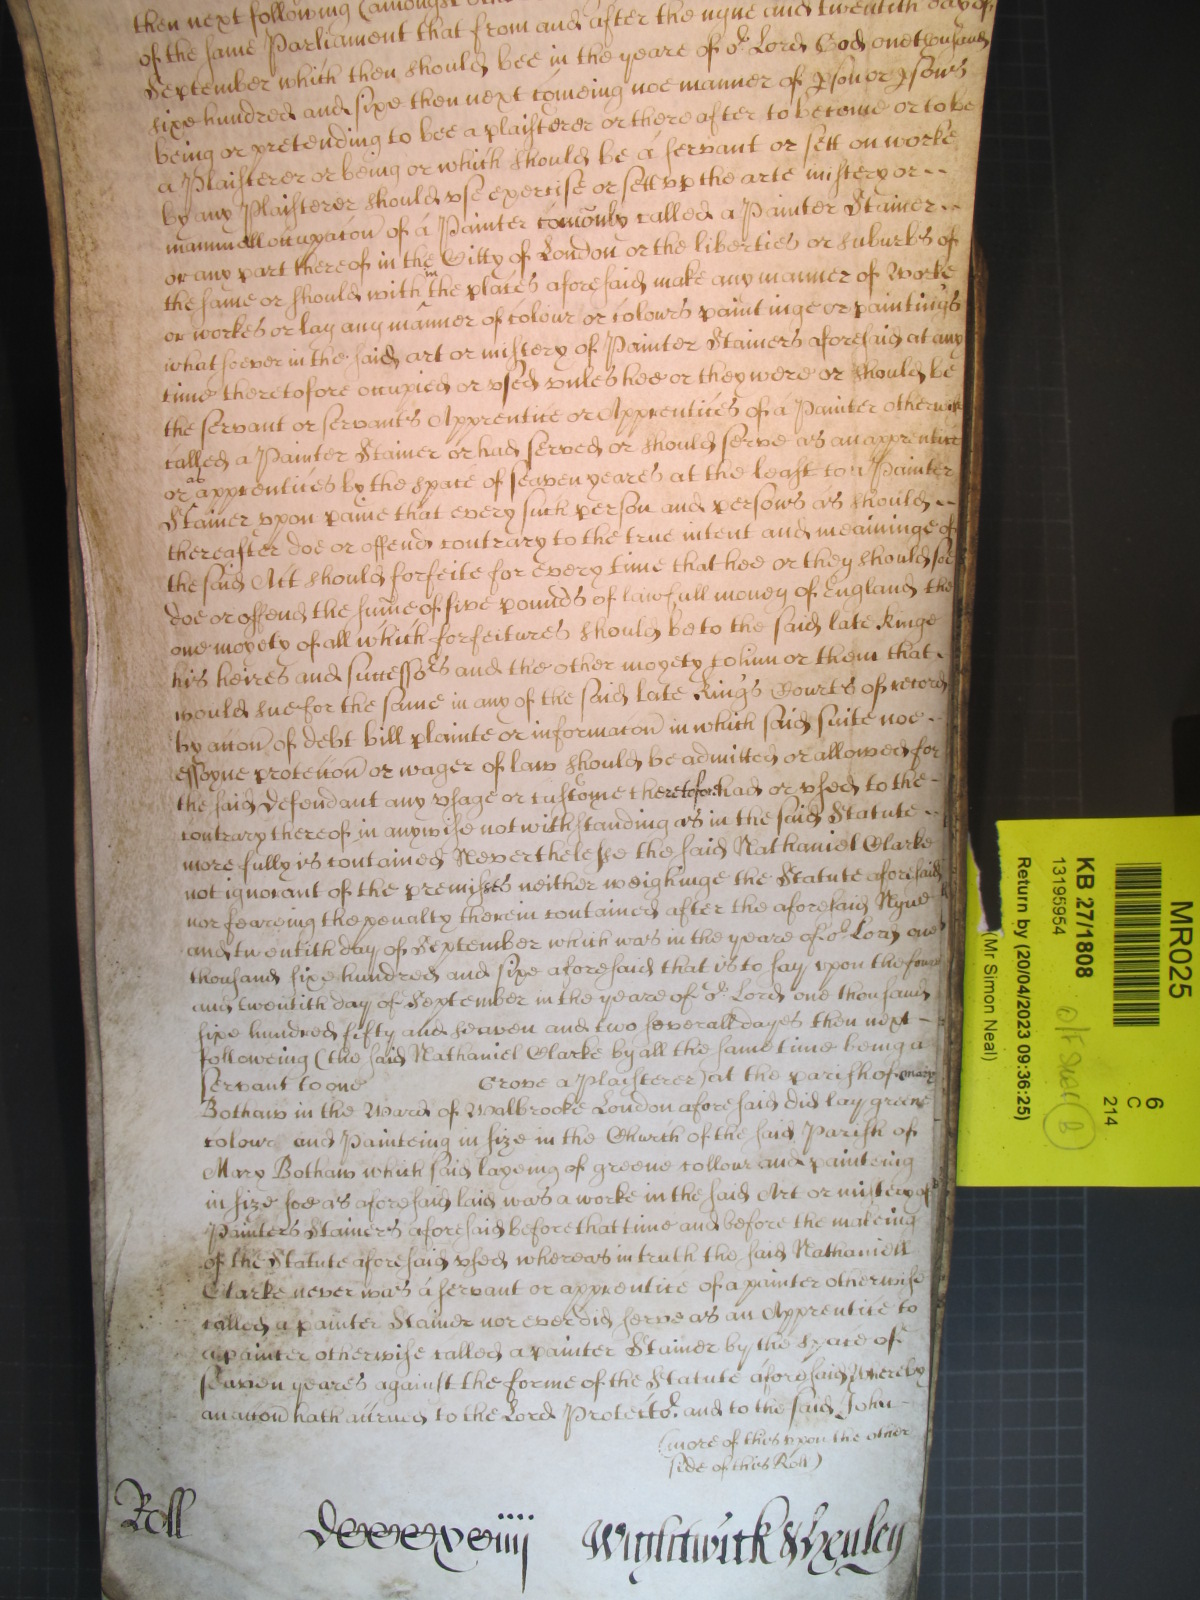 then next following (amongst other
of the same Parliament that from and after the nyne and twentith day of
September which then should bee in the yeare of or Lord God one thousand
sixe hundred and sixe then next comeing noe manner of pson or psons
being or pretending to bee a plaisterer or thereafter to become or to be
a Plaisterer or being or which should be a servant or sett on worke
by any Plaisterer should vse exercise or sett vp the arte mistery or --
mannuell occupacon of a Painter comonly called a Painter Stainer --
or any part thereof in the Citty of London or the liberties or suburbs of
the same or should with in the places aforesaid make any manner of Worke
or workes or lay any manner of colour or colours paintinge or paintings
whatsoever in the said art or mistery of Painter Stainers aforesaid at any
time theretofore occupied or vsed vnles hee or they were or should be
the servant or servants Apprentice or Apprentices of a Painter otherwise
called a Painter Stainer or had served or should serve as an apprentice
or as apprentices by the space of seaven yeares at the least to a Painter
Stainer vpon paine that every such person and persons as should --
thereafter doe or offend contrary to the true intent and meaninge of
the said Act should forfeite for every time that hee or they should soe
doe or offend the sume of five pounds of lawfull money of England the
one moyety of all which forfeitures should be to the said late Kinge
his heires and successors and the other moyety to him or them that -
would sue for the same in any of the said late Kings Courts of record
by accon of debt bill plainte or informacon in which said suite noe --
essoyne proteccon or wager of law should be admitted or allowed for
the said Defendant any vsage or custome theretofore had or vsed to the -
contrary thereof in anywise notwithstanding as in the said Statute --
more fully is contained Neverthelesse the said Nathaniel Clarke
not ignorant of the premisses neither weighinge the Statute aforesaid
nor feareing the penalty therein contained after the aforesaid Nyne
and twentith day of September which was in the yeare of or Lord one
thousand sixe hundred and sixe aforesaid that is to say vpon the fower
and twentith day of September in the yeare of or Lord one thousand
sixe hundred fifty and seaven and two severall dayes then next -
followeing (the said Nathaniel Clarke by all the same time being a
servant to one Grove a Plaisterer) at the parish of mary
Bothaw in the Ward of Walbrooke London aforesaid did lay greene
colour and Painteing in size in the Church of the said Parish of
Mary Bothaw which said layeing of greene collour and painteing
in size soe as aforesaid laid was a worke in the said Art or mistery of
Painters Stainers aforesaid before that time and before the makeing
of the Statute aforesaid vsed whereas in truth the said Nathaniell
Clarke never was a servant or apprentice of a painter otherwise
called a painter Stainer nor ever did serve as an Apprentice to
a painter otherwise called a painter Stainer by the space of
seaven yeares against the forme of the Statute aforesaid Whereby
an accon hath accrued to the Lord Protector and to the said John -
(more of this vpon the other
side of this Roll)
Roll Dxxxxviiij Wightwick & Henley
MR025
6
C
214
KB 27/1808
13195954
Return by (20/04/2023 09:36:25)
(Mr Simon Neal)